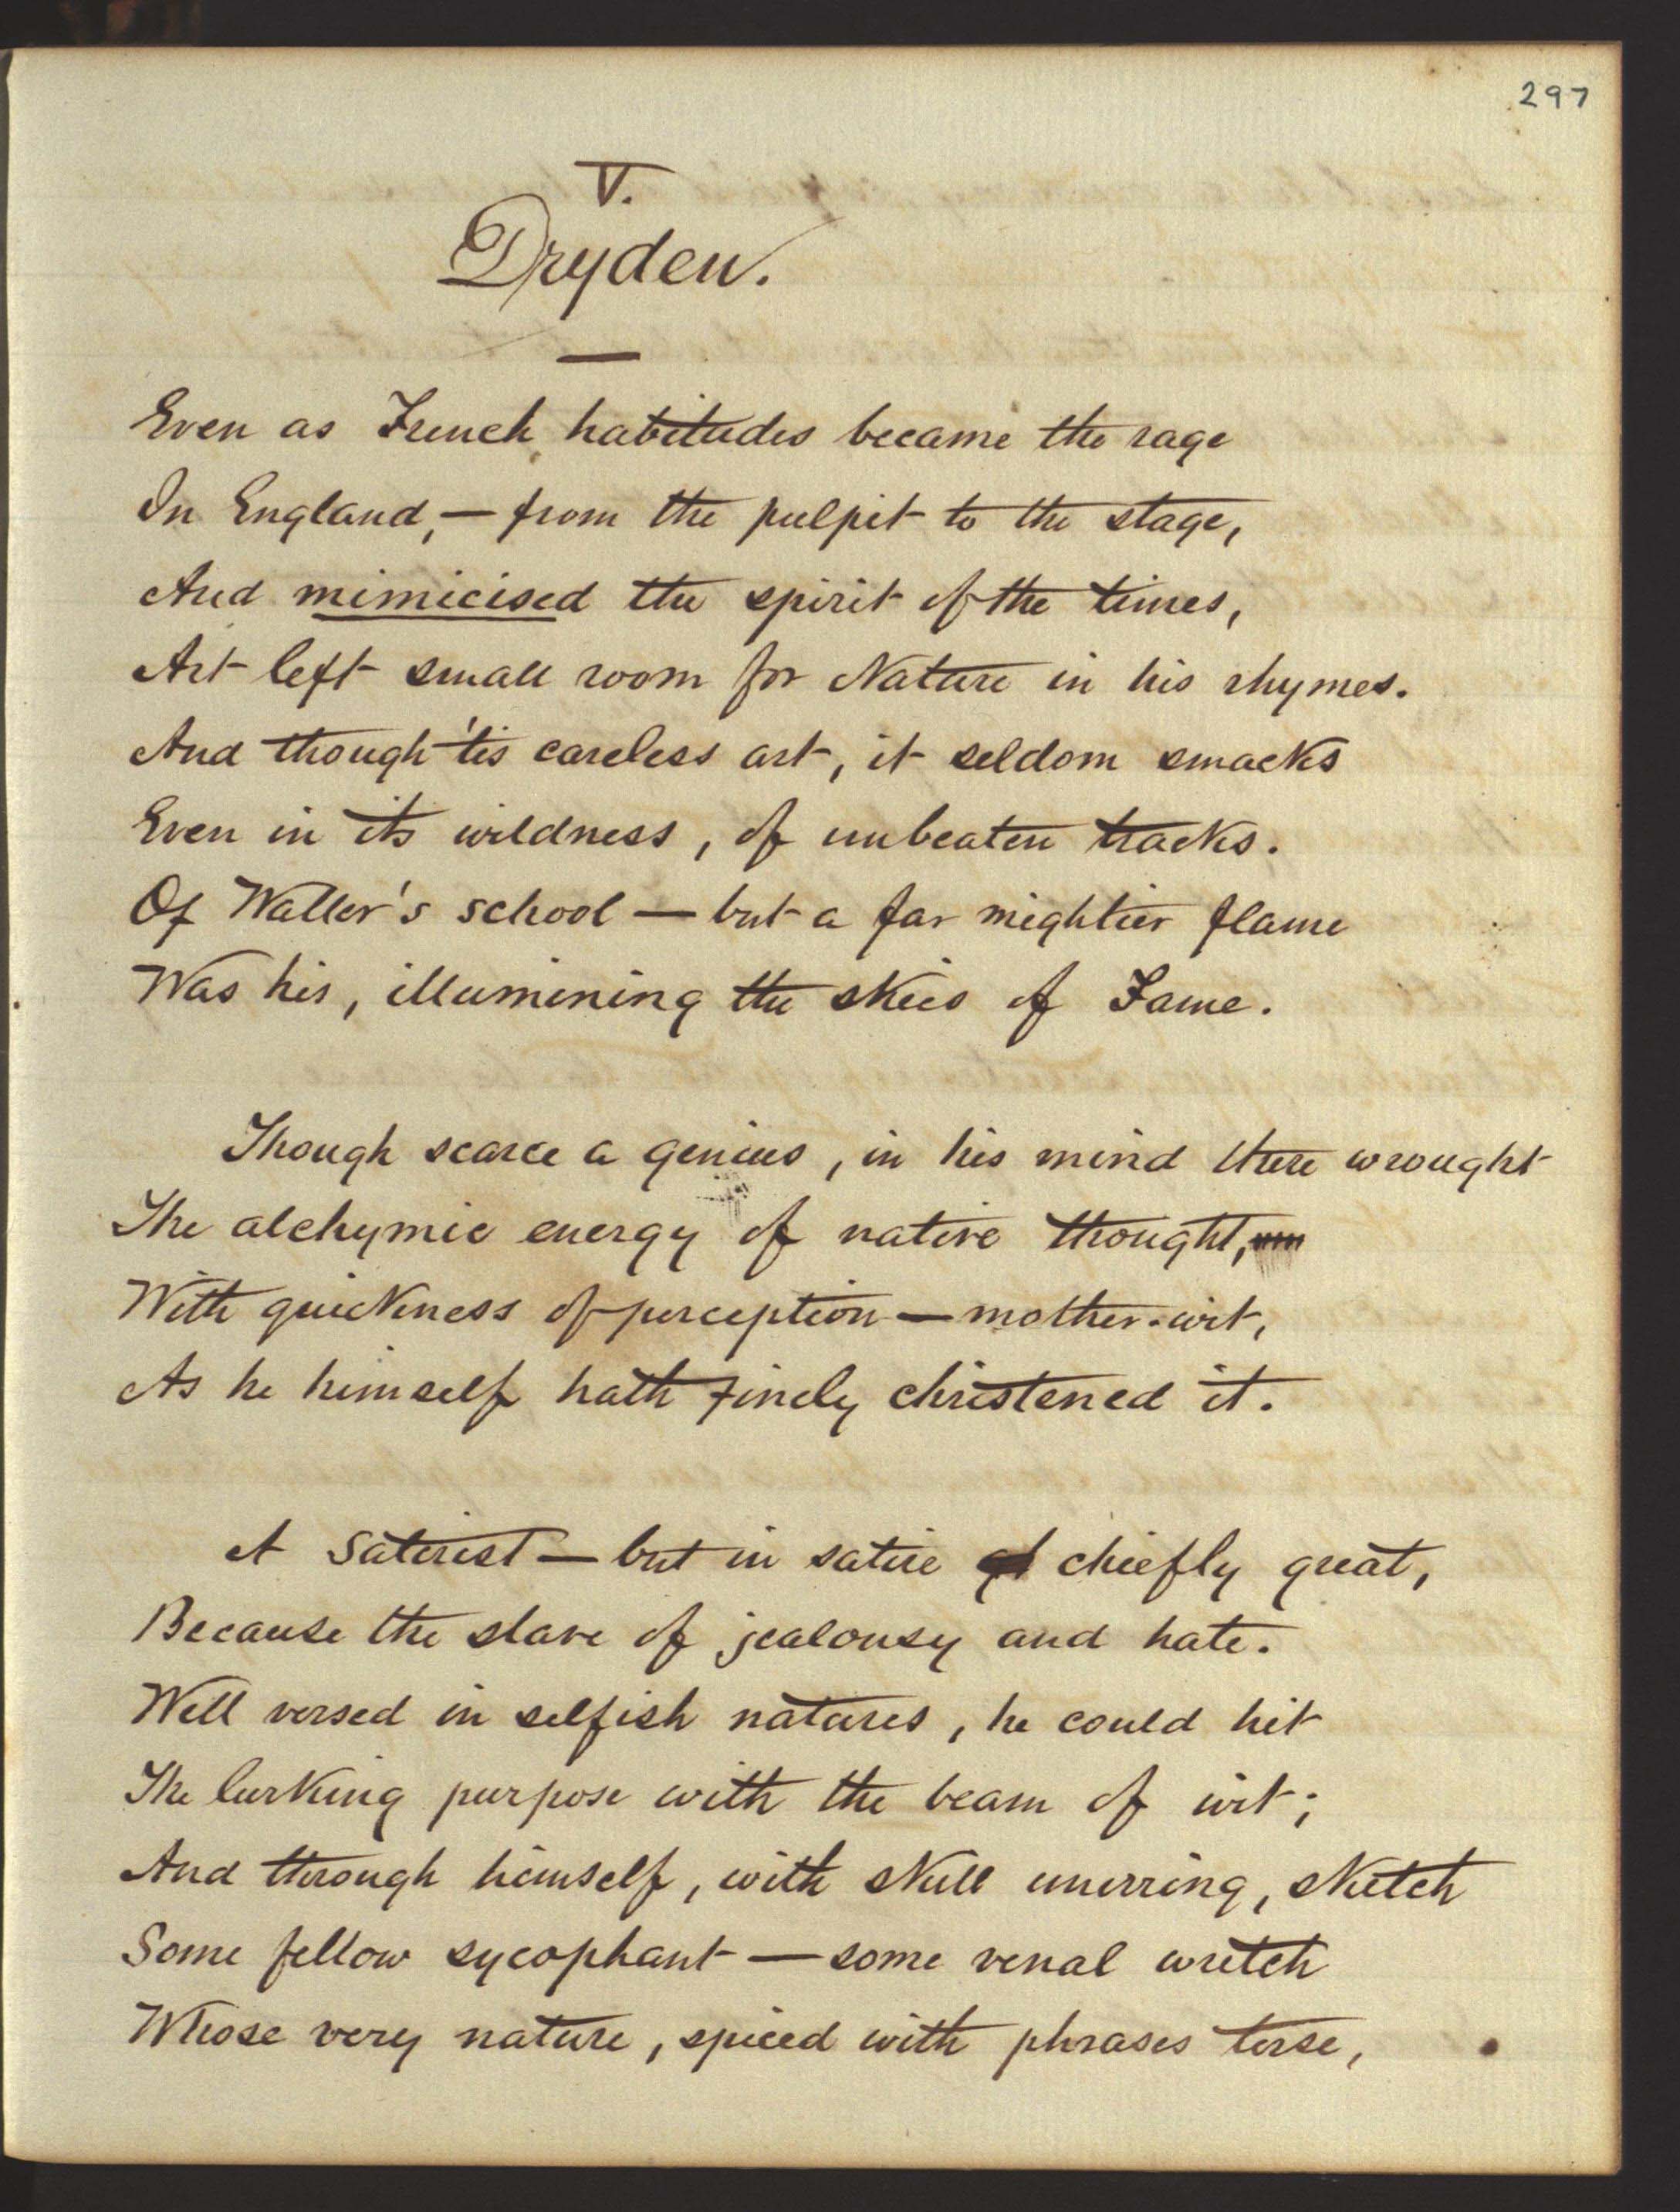 297
V.
Dryden.
Even as French habitudes became the rage
In England, — from the pulpit to the stage,
And mimicised the spirit of the times,
Art left small room for Nature in his rhymes.
And though 'tis careless art, it seldom smacks
Even in its wildness, of unbeaten tracks.
Of Waller's school — but a far mightier flame
Was his, illumining the skies of Fame.
Though scarce a genius, in his mind there wrought
The alchymic energy of native thought,
With quickness of perception — mother-wit,
As he himself hath finely christened it.
A Satirist — but in satire chiefly great,
Because the slave of jealousy and hate.
Well versed in selfish natures, he could hit
The lurking purpose with the beam of wit;
And through himself, with skill unerring, sketch
Some fellow sycophant — some venal wretch
Whose very nature, spiced with phrases terse,